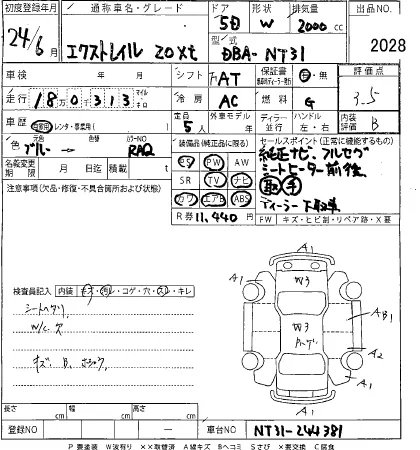 初度登録年月 通称車名・グレード ドア 形状 排気量 出品NO.
24/6月 エクストレイル 20Xt 5D W 2000cc
型式 DBA- NT31 2028
車検 年 月 シフト FAT 保証書 有・無 評価点
走行 18万0千313 マイル キロ 冷房 AC 燃料 G 3.5
車歴 自家用・レンタ・事業用( ) 定員 5人 外車モデル年 ディーラー 並行 ハンドル 左・右 内装評価 B
色 元色 ブルー 色替 カラーNO RAQ 装備品(純正品に限る) セールスポイント(正常に機能するもの)
名義変更期限 月 日迄 積載 t PS PW AW 純正ナビ、フルセグ
注意事項(欠品・修復・不具合箇所および状態) SR TV ナビ シートヒーター前後
カワ エアB ABS 取 手
R券 11,440円 ディーラー下取車
FW キズ・ヒビ割・リペア跡・X要
検査員記入 内装 キズ・汚レ・コゲ・穴・スレ・キレ
W/C 穴
キズ、B、
A1
A1 W3 A1
W3 AB1
A2
A1
A1
長さ cm 幅 cm 高さ cm
登録NO 車台NO NT31-244381
P 要塗装 W波有り ××取替済 A線キズ Bヘコミ Sサビ ×要交換 C腐食